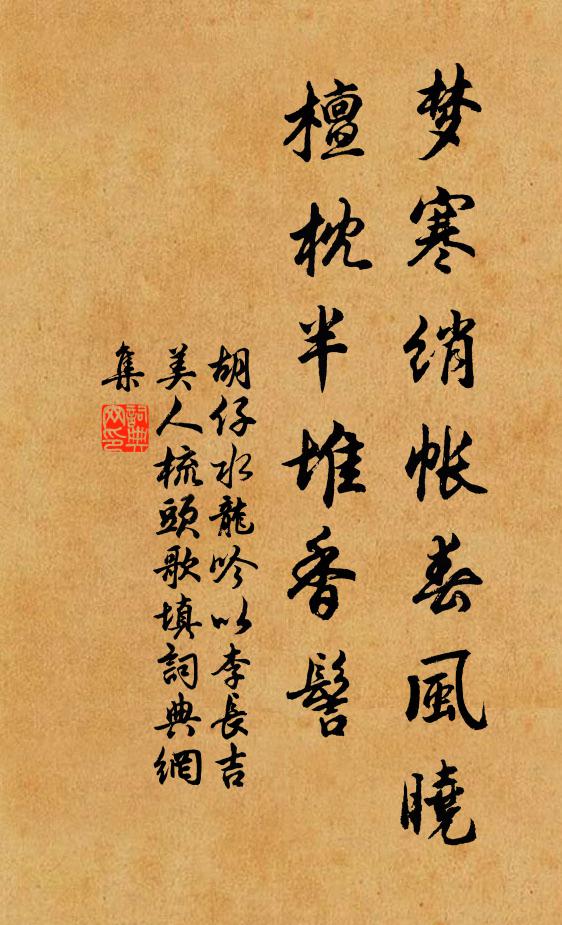 梦寒绡帐春風曉
檀枕半堆香髻
胡仔水龍吟以李長吉
美人梳頭歌填詞典網
集
詞典網印